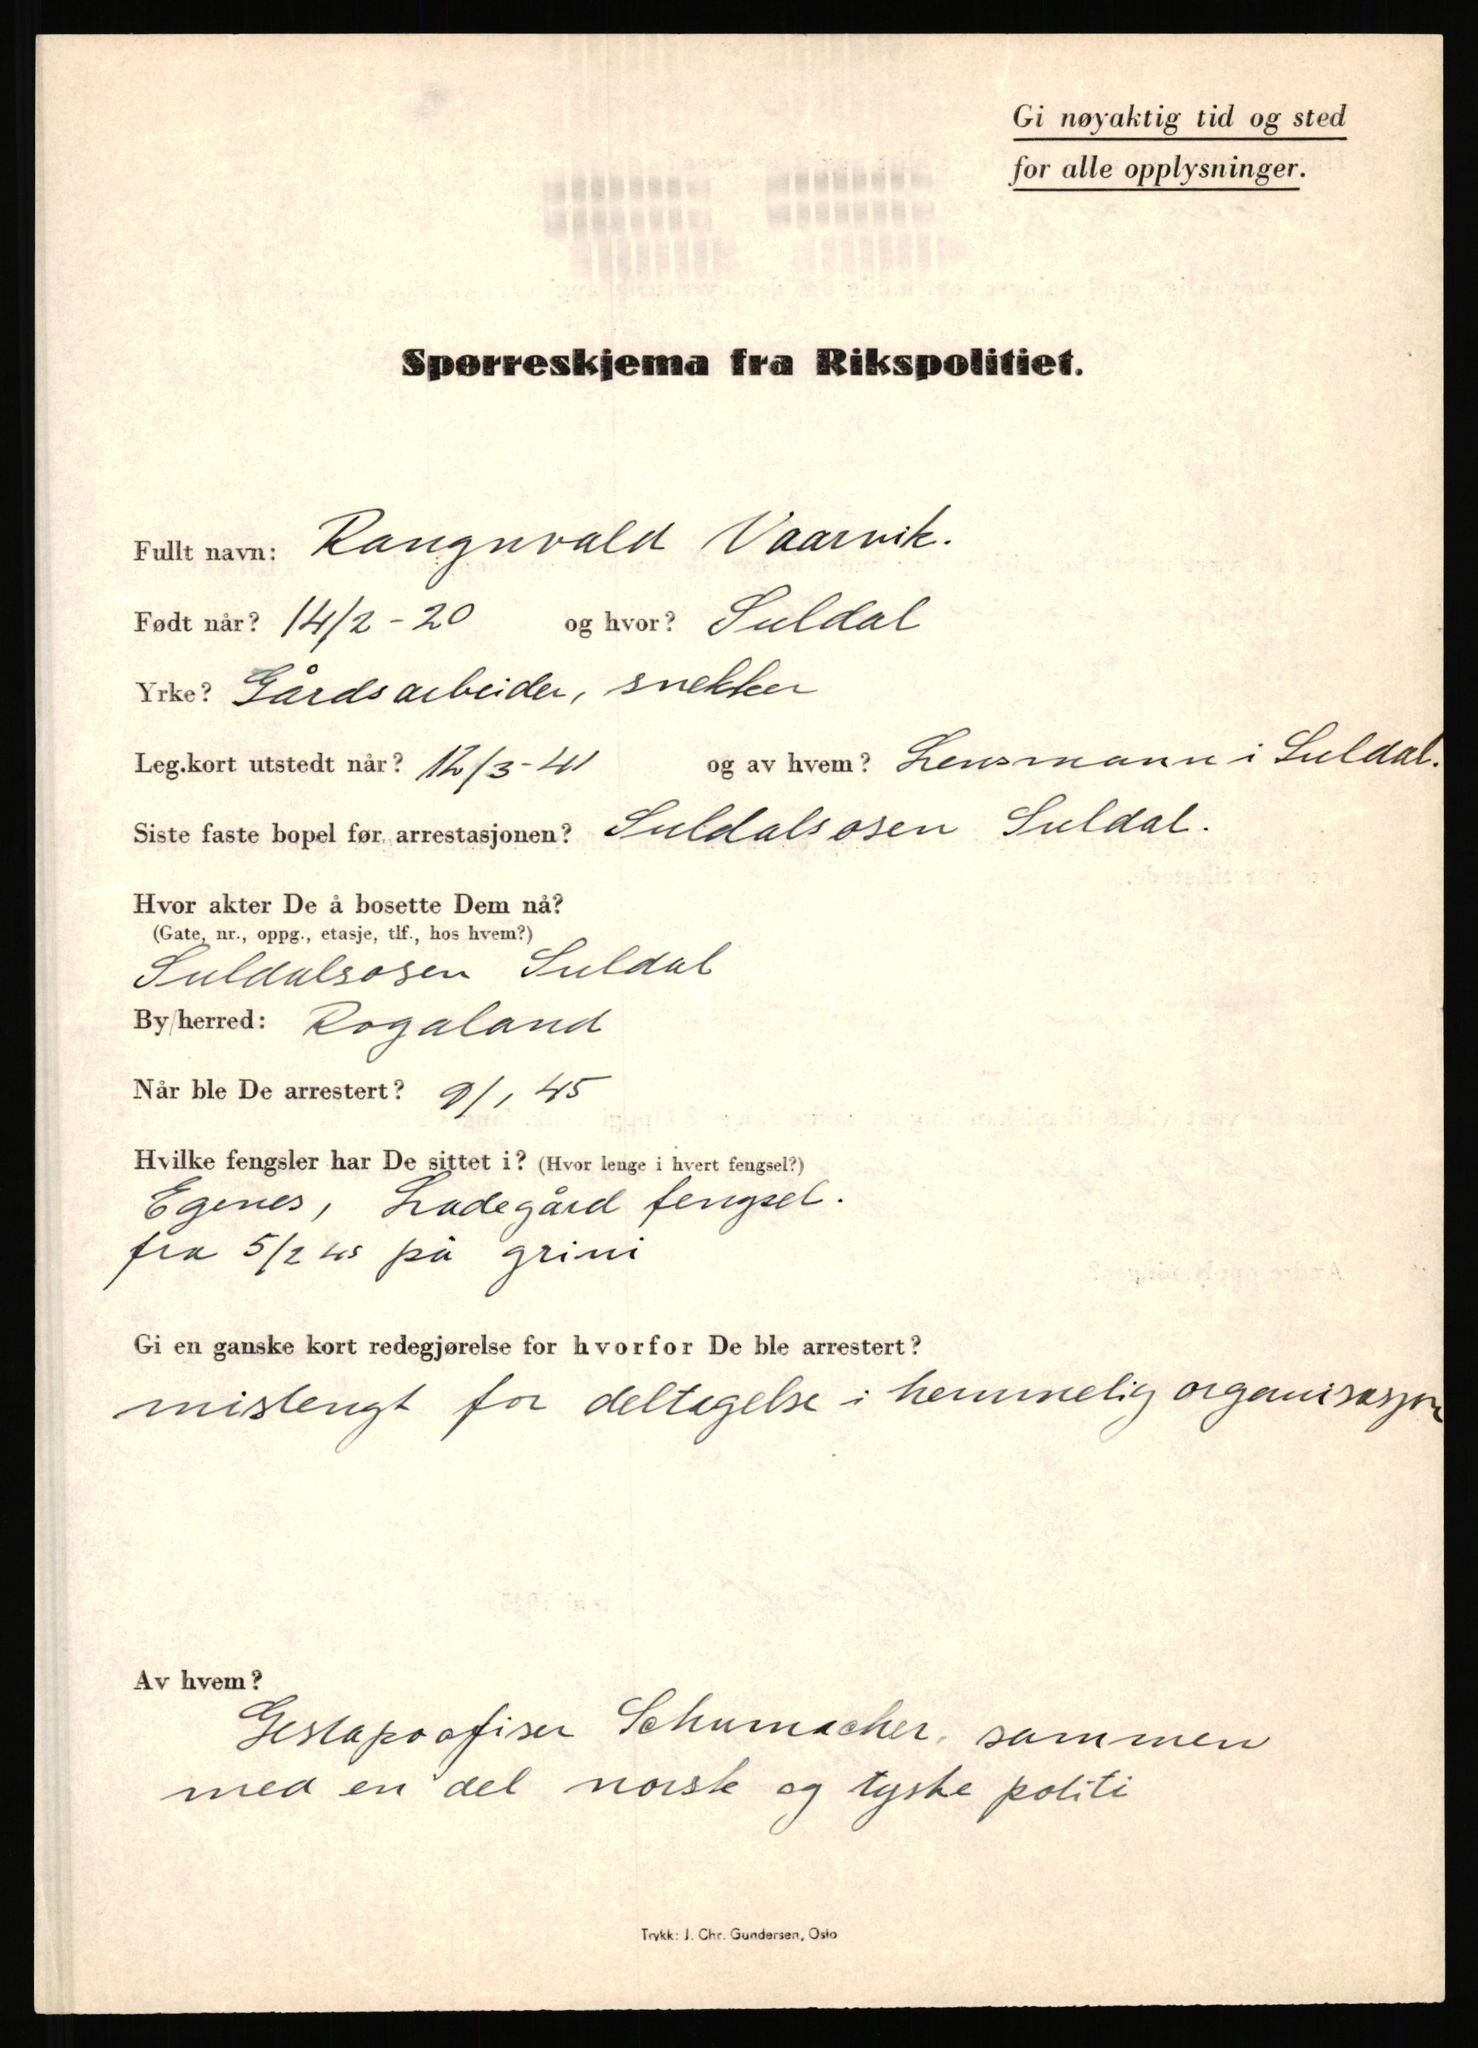 Gi nøyaktig tid og sted
for alle opplysninger.
Spørreskjema fra Rikspolitiet.
Fullt navn: Rangnvald Vaarvik.
Født når? 14/2-20 og hvor? Suldal
Yrke? Gårdsarbeider, snekker
Leg.kort utstedt når? 12/3-41 og av hvem? Lensmann i Suldal.
Siste faste bopel før arrestasjonen? Suldalsosen Suldal.
Hvor akter De å bosette Dem nå?
(Gate, nr., oppg., etasje, tlf., hos hvem?)
Suldalsosen Suldal
By/herred: Rogaland
Når ble De arrestert? 9/1 45
Hvilke fengsler har De sittet i? (Hvor lenge i hvert fengsel?)
Egenes, Ladegård fengsel.
fra 5/2 45 på grini
Gi en ganske kort redegjørelse for hvorfor De ble arrestert?
mistengt for deltagelse i hemmelig organisasjon
Av hvem?
Gestapoofiser Schumacher, sammen
med en del norsk og tyske politi
Trykk: J. Chr. Gundersen, Oslo